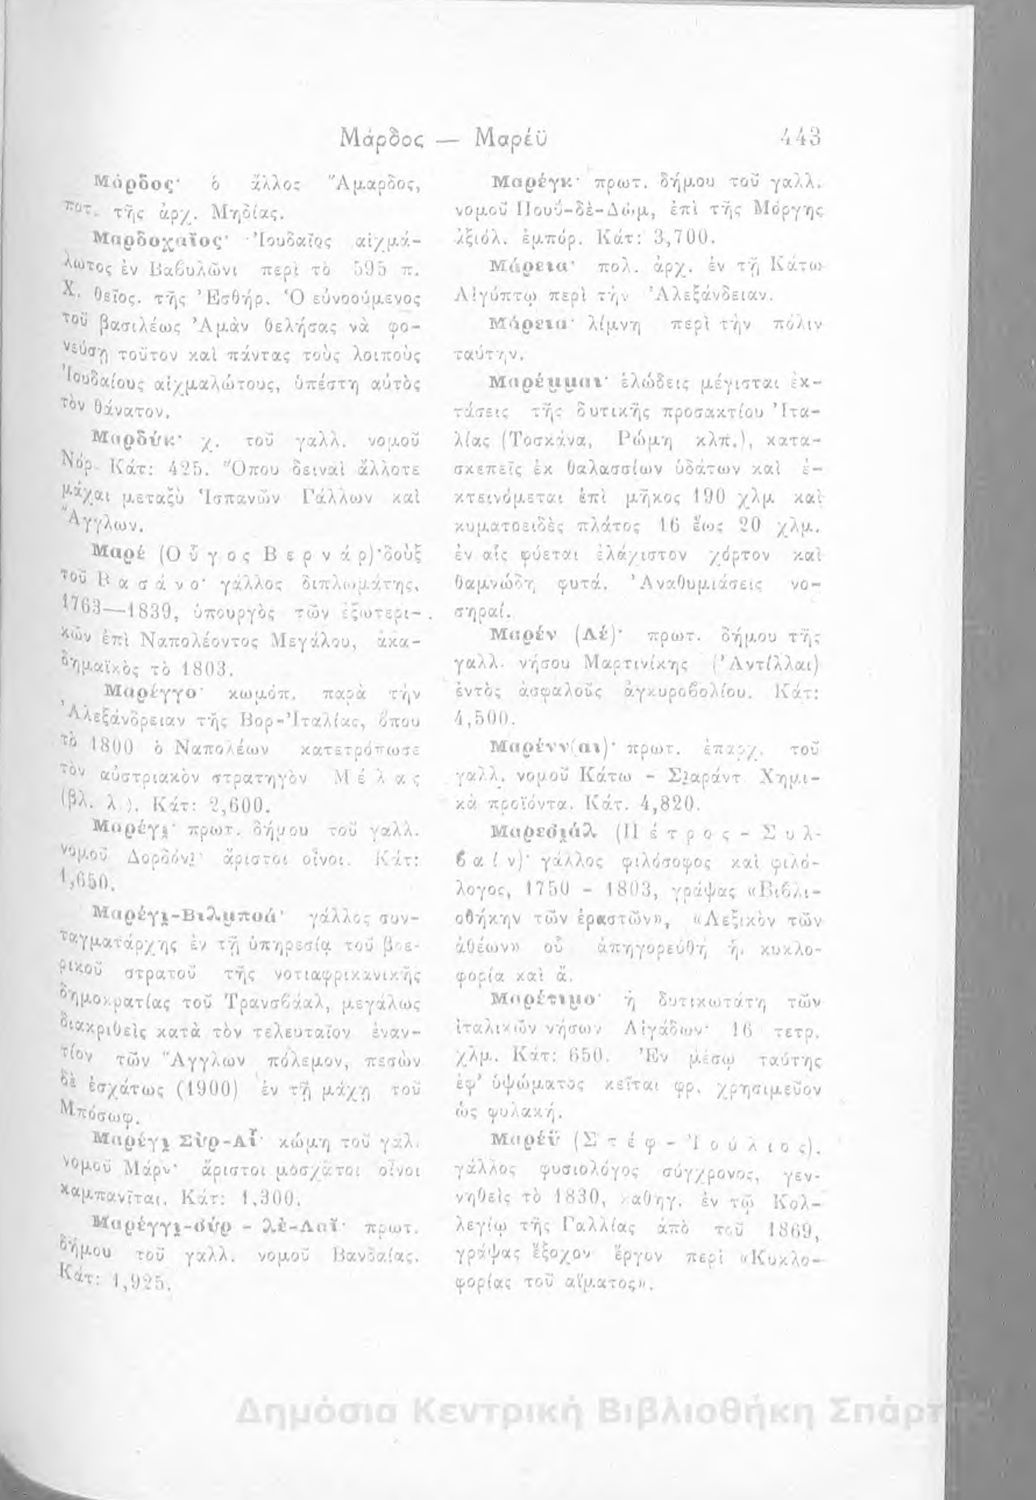 Μάρδος — Μαρέϋ 443
Μάρδος· ὁ ἄλλος Ἄμαρδος,
ποτ. τῆς ἀρχ. Μηδίας.
Μαρδοχαῖος· Ἰουδαῖος αἰχμά-
λωτος ἐν Βαβυλῶνι περὶ τὸ 595 π.
Χ. θεῖος. τῆς Ἐσθήρ. Ὁ εὐνοούμενος
τοῦ βασιλέως Ἀμὰν θελήσας νὰ φο-
νεύσῃ τοῦτον καὶ πάντας τοὺς λοιποὺς
Ἰουδαίους αἰχμαλώτους, ὑπέστη αὐτὸς
τὸν θάνατον.
Μαρδύκ· χ. τοῦ γαλλ. νομοῦ
Νόρ. Κάτ: 425. Ὅπου δειναὶ ἄλλοτε
μάχαι μεταξὺ Ἱσπανῶν Γάλλων καὶ
Ἄγγλων.
Μαρέ (Οὖγος Βερνάρ)· δοὺξ
τοῦ Βασάνο· γάλλος διπλωμάτης,
1763—1839, ὑπουργὸς τῶν ἐξωτερι-
κῶν ἐπὶ Ναπολέοντος Μεγάλου, ἀκα-
δημαϊκὸς τὸ 1803.
Μαρέγγο· κωμόπ. παρὰ τὴν
Ἀλεξάνδρειαν τῆς Βορ-Ἰταλίας, ὅπου
τὸ 1800 ὁ Ναπολέων κατετρόπωσε
τὸν αὐστριακὸν στρατηγὸν Μέλας
(βλ. λ.). Κάτ: 2,600.
Μαρέγι· πρωτ. δήμου τοῦ γαλλ.
νομοῦ Δορδόνι· ἄριστοι οἶνοι. Κάτ:
1,650.
Μαρέγι-Βιλμποά· γάλλος συν-
ταγματάρχης ἐν τῇ ὑπηρεσίᾳ τοῦ βοε-
ρικοῦ στρατοῦ τῆς νοτιαφρικανικῆς
δημοκρατίας τοῦ Τρανσβάαλ, μεγάλως
διακριθεὶς κατὰ τὸν τελευταῖον ἐναν-
τίον τῶν Ἄγγλων πόλεμον, πεσὼν
δὲ ἐσχάτως (1900) ἐν τῇ μάχῃ τοῦ
Μπόσωφ.
Μαρέγι Σὺρ-Αΐ· κώμη τοῦ γαλ.
νομοῦ Μάρν· ἄριστοι μοσχάτοι οἶνοι
καμπανῖται. Κάτ: 1,300.
Μαρέγγι-σύρ - λὲ-Λαΐ· πρωτ.
δήμου τοῦ γαλλ. νομοῦ Βανδαίας.
Κάτ: 1,925.
Μαρέγκ· πρωτ. δήμου τοῦ γαλλ.
νομοῦ Πουΰ-δὲ-Δώμ, ἐπὶ τῆς Μόργης
ἀξιόλ. ἐμπόρ. Κάτ: 3,700.
Μάρεια· πολ. ἀρχ. ἐν τῇ Κάτω
Αἰγύπτῳ περὶ τὴν Ἀλεξάνδειαν.
Μάρεια· λίμνη περὶ τὴν πόλιν
ταύτην.
Μαρέμμαι· ἑλώδεις μέγισται ἐκ-
τάσεις τῆς δυτικῆς προσακτίου Ἰτα-
λίας (Τοσκάνα, Ρώμη κλπ.), κατα-
σκεπεῖς ἐκ θαλασσίων ὑδάτων καὶ ἐ-
κτεινόμεται ἐπὶ μῆκος 190 χλμ καὶ
κυματοειδὲς πλάτος 16 ἕως 20 χλμ.
ἐν αἷς φύεται ἐλάχιστον χόρτον καὶ
θαμνώδη φυτά. Ἀναθυμιάσεις νο-
σηραί.
Μαρέν (Λέ)· πρωτ. δήμου τῆς
γαλλ. νήσου Μαρτινίκης (Ἀντίλλαι)
ἐντὸς ἀσφαλοῦς ἀγκυροβολίου. Κάτ:
4,500.
Μαρένν(αι)· πρωτ. ἐπαρχ. τοῦ
γαλλ. νομοῦ Κάτω - Σ̣αράντ Χημι-
κὰ προϊόντα. Κάτ. 4,820.
Μαρεσιάλ (Πέτρος - Συλ-
βαίν)· γάλλος φιλόσοφος καὶ φιλό-
λογος, 1750 - 1803, γράψας «Βιβλι-
οθήκην τῶν ἐραστῶν», «Λεξικὸν τῶν
ἀθέων» οὗ ἀπηγορεύθη ἡ. κυκλο-
φορία καὶ ἄ.
Μαρέτιμο· ἡ δυτικωτάτη τῶν
ἰταλικῶν νήσων Αἰγάδων· 16 τετρ.
χλμ. Κάτ: 650. Ἐν μέσῳ ταύτης
ἐφ’ ὑψώματος κεῖται φρ. χρησιμεῦον
ὡς φυλακή.
Μαρέϋ (Στέφ - Ἰούλιος).
γάλλος φυσιολόγος σύγχρονος, γεν-
νηθεὶς τὸ 1830, καθηγ. ἐν τῷ Κολ-
λεγίῳ τῆς Γαλλίας ἀπὸ τοῦ 1869,
γράψας ἔξοχον ἔργον περὶ «Κυκλο-
φορίας τοῦ αἵματος».
Δημόσια Κεντρική Βιβλιοθήκη Σπάρτ